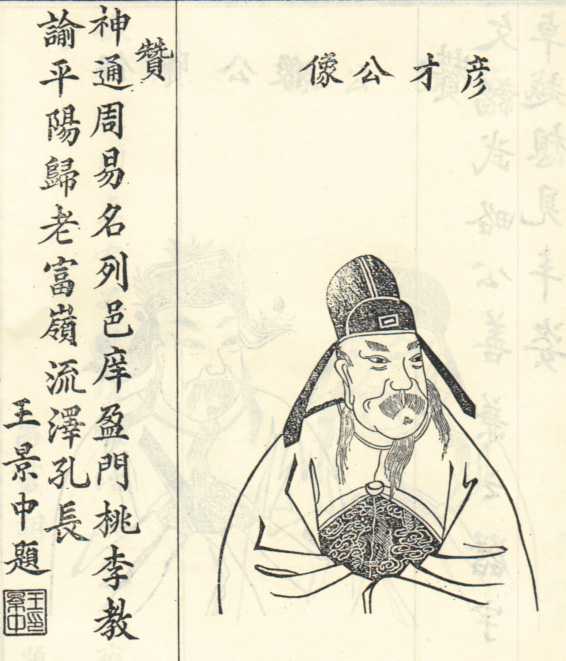 彥才公像
贊
神通周易名列邑庠盈門桃李教
諭平陽歸老富嶺流澤孔長
王景中題